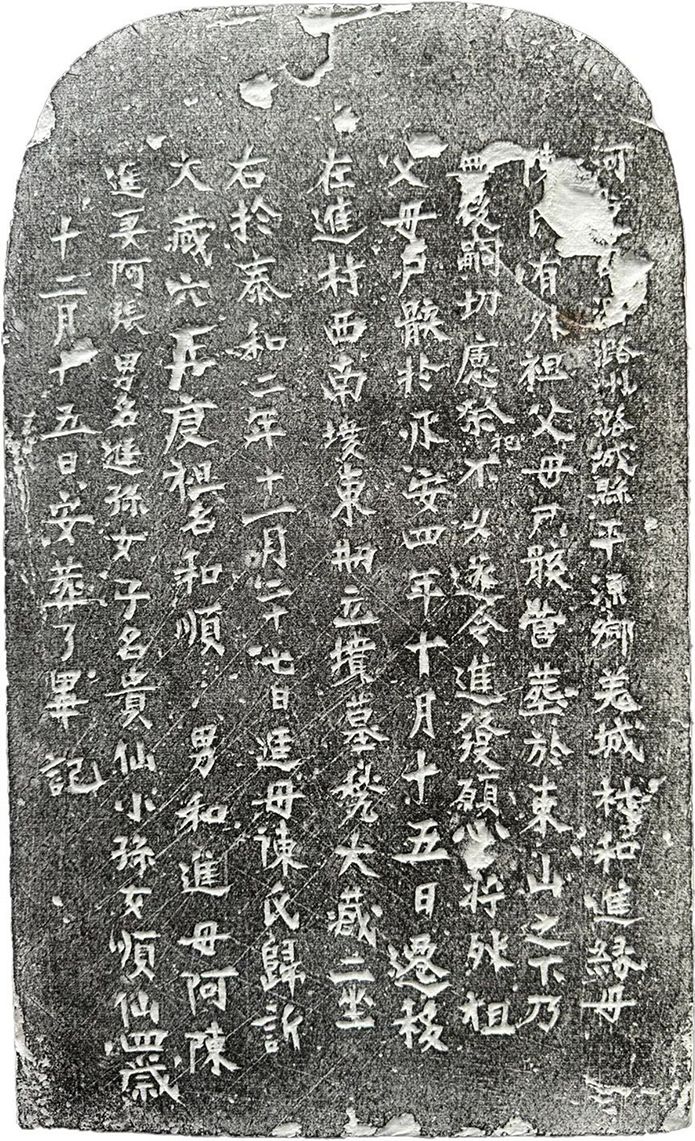 河東南潞州潞城縣平源鄉羌城村和進緣母
陳氏有外祖父母尸骸當葬於東山之下乃
無後嗣切慮祭祖不以遂令進發願心將外祖
父母尸骸於承安四年十月十五日遷移
在進村西南墳東北立墳墓甃大藏二坐
右於泰和二年十一月二十七日進母陳氏歸訴
大藏穴 辰庚祖名和順 男和進母阿陳
進妻阿張 男名進孫女子名貴仙小孫女順仙四歲
十二月十五日安葬了畢 記